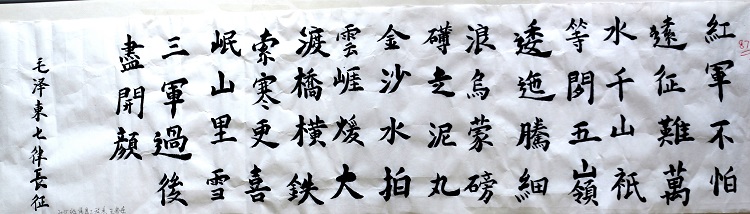 紅軍不怕
遠征難萬
水千山祇
等閑五嶺
逶迤騰細
浪烏蒙磅
礴走泥丸
金沙水拍
雲崕煖大
渡橋橫鉄
索寒更喜
岷山里雪
三軍過後
盡開顏
毛泽東七律長征
87